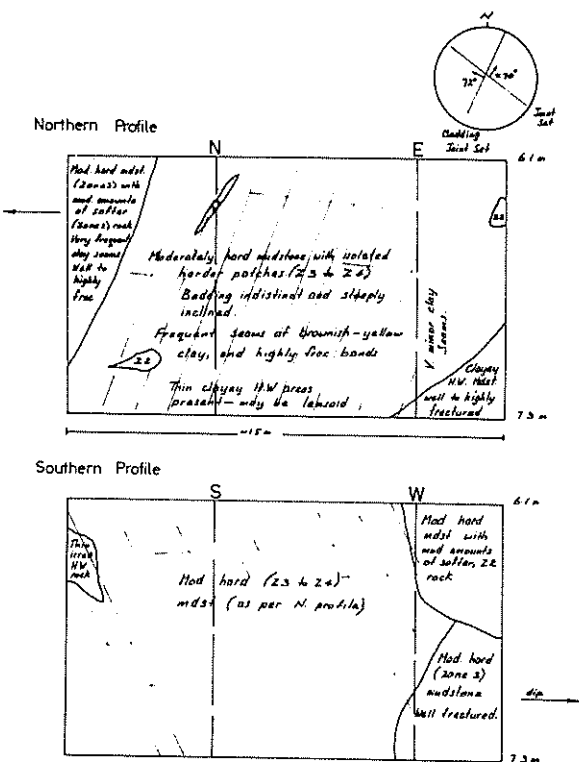 N
72°
70°
Joint
Set
Bedding
Joint Set
Northern Profile
N
E
6.1m
Mod. hard mdst.
(zone 3) with
mod. amounts
of softer
(zone 2) rock
Very frequent
clay seams
Well to
highly
frac
Z2
Moderately hard mudstone, with isolated
harder patches (Z3 to Z4)
Bedding indistinct and steeply
inclined.
Frequent seams of Brownish-yellow
clay, and highly frac bands
Z2
Thin clayey H.W areas
present - may be lensoid
V. minor clay
seams.
Clayey
H.W. Mdst
well to highly
fractured
7.3 m
~15m
Southern Profile
S
W
6.1m
Thin
irreg
H.W.
rock
Mod hard (Z3 to Z4)
mdst (as per N. profile)
Mod hard
mdst with
mod amounts
of softer, Z2
rock
Mod. hard
(zone 3)
mudstone
Well fractured.
dip
7.3m